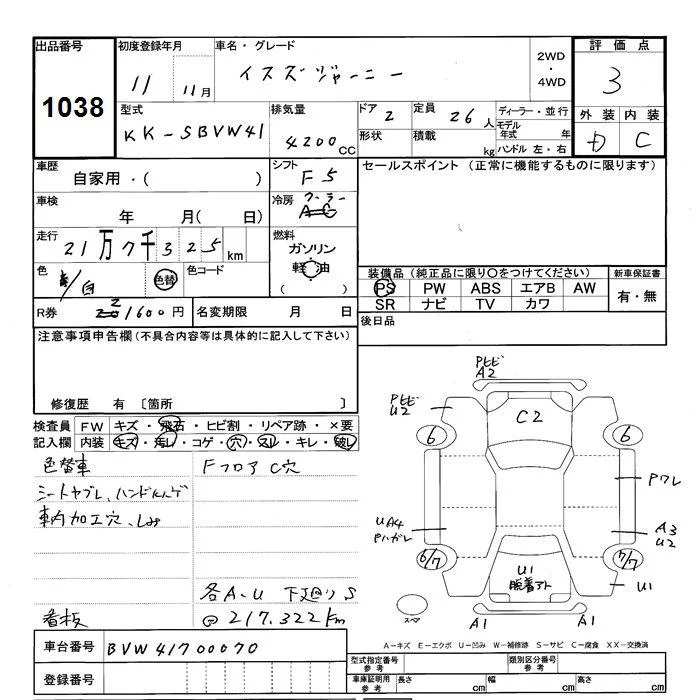 出品番号 初度登録年月 車名・グレード 2WD・4WD 評価点
1038 11 11月 イスズジャーニー 3
型式 排気量 ドア 2 定員 26人 ディーラー・並行 外装 内装
KK-SBVW41 4200CC 形状 積載 kg モデル年式 年 ハンドル 左・右 D C
車歴 シフト セールスポイント (正常に機能するものに限ります)
自家用・( ) F5
車検 冷房 クーラー
年 月( 日) AC
走行 燃料
21万7千325km ガソリン
色 色替 色コード 軽油
/白 ( )
装備品 (純正品に限り○をつけてください) 新車保証書
PS PW ABS エアB AW 有・無
SR ナビ TV カワ
R券 21600円 名変期限 月 日 後日品
注意事項申告欄 (不具合内容等は具体的に記入して下さい)
修復歴 有 〔箇所 〕
検査員 FW キズ・飛石・ヒビ割・リペア跡・×要
記入欄 内装 キズ・汚レ・コゲ・穴・スレ・キレ・破レ
色替車 FフロアC穴
シートヤブレ、ハンドル
車内加工穴、しみ
各A-U 下廻りS
看板 @217.322km
車台番号 BVW41700070
登録番号
Pヒビ
A2
Pヒビ
U2
C2
6 6
Pワレ
UA4
Pハガレ
A3
U2
6/7 7/7
U1
脱着アト
U1
スペア
A1 A1
A-キズ E-エクボ U-凹み W-補修跡 S-サビ C-腐食 XX-交換済
型式指定番号 参考 類別区分番号 参考
車庫証明用 参考 長さ cm 幅 cm 高さ cm